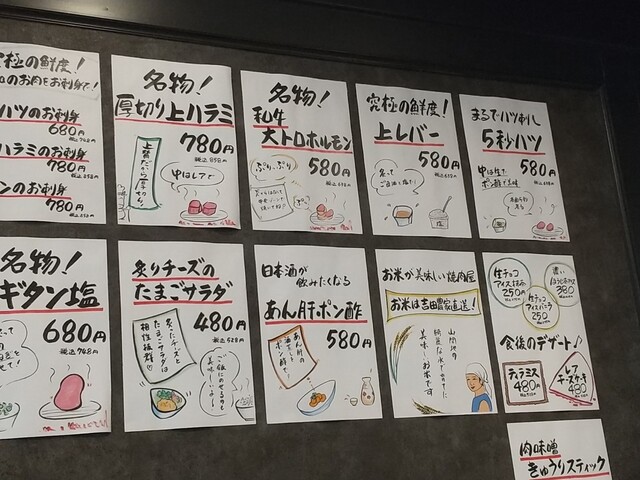 極の鮮度!
のお肉をお刺身で!
ハツのお刺身
680円
税込748円
ハラミのお刺身
780円
税込858円
ンのお刺身
780円
税込858円
名物!
厚切り上ハラミ
780円
税込858円
上質だから厚切り!
中はレアで
名物!
和牛
大トロホルモン
580円
ぷりっぷり
究極の鮮度!
上レバー
580円
塩
まるでハツ刺し
5秒ハツ
580円
名物!
ギタン塩
680円
税込748円
炙りチーズの
たまごサラダ
480円
税込528円
炙ったチーズと
たまごサラダは
相性抜群
ご飯にのせるのも
美味しいよ!
日本酒が
飲みたくなる
あん肝ポン酢
580円
あん肝の
ポン酢で。
お米が美味しい焼肉屋
お米は吉田農家直送!
山間地の
綺麗な水で育てた
美味しいお米です
生チョコ
アイス抹茶
250円
生チョコ
アイスバニラ
250円
濃い
380円
食後のデザート♪
ティラミス
480円
レア
チーズケーキ
480円
肉味噌
きゅうりスティック